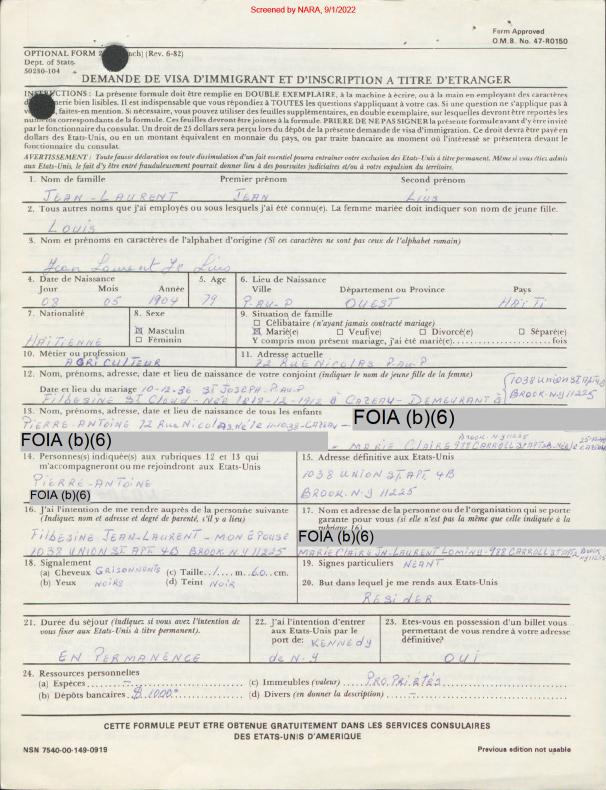 Screened by NARA, 9/1/2022
Form Approved
O.M.B. No. 47-R0150
OPTIONAL FORM 2 nch) (Rev. 6-82)
Dept. of State
50230-104
DEMANDE DE VISA D'IMMIGRANT ET D'INSCRIPTION A TITRE D'ETRANGER
INSTRUCTIONS : La présente formule doit être remplie en DOUBLE EXEMPLAIRE, à la machine à écrire, ou à la main en employant des caractères
merie bien lisibles. Il est indispensable que vous répondiez à TOUTES les questions s'appliquant à votre cas. Si une question ne s'applique pas à
, faites-en mention. Si nécessaire, vous pouvez utiliser des feuilles supplémentaires, en double exemplaire, sur lesquelles devront être reportés les
numéros correspondants de la formule. Ces feuilles devront être jointes à la formule. PRIERE DE NE PAS SIGNER la présente formule avant d'y être invité
par le fonctionnaire du consulat. Un droit de 25 dollars sera perçu lors du dépôt de la présente demande de visa d'immigration. Ce droit devra être payé en
dollars des Etats-Unis, ou en un montant équivalent en monnaie du pays, ou par traite bancaire au moment où l'intéressé se présentera devant le
fonctionnaire du consulat.
AVERTISSEMENT : Toute fausse déclaration ou toute dissimulation d'un fait essentiel pourra entraîner votre exclusion des Etats-Unis à titre permanent. Même si vous étiez admis
aux Etats-Unis, le fait d'y être entré frauduleusement pourrait donner lieu à des poursuites judiciaires et/ou à votre expulsion du territoire.
1. Nom de famille Premier prénom Second prénom
JEAN-LAURENT JEAN Lius
2. Tous autres noms que j'ai employés ou sous lesquels j'ai été connu(e). La femme mariée doit indiquer son nom de jeune fille.
Louis
3. Nom et prénoms en caractères de l'alphabet d'origine (Si ces caractères ne sont pas ceux de l'alphabet romain)
Jean Laurent Jn Lius
4. Date de Naissance 5. Age 6. Lieu de Naissance
Jour Mois Année Ville Département ou Province Pays
08 05 1904 79 P-AU-P OUEST HAITI
7. Nationalité 8. Sexe 9. Situation de famille
☐ Célibataire (n'ayant jamais contracté mariage)
☒ Masculin ☒ Marié(e) ☐ Veuf(ve) ☐ Divorcé(e) ☐ Séparé(e)
HAÏTIENNE ☐ Féminin Y compris mon présent mariage, j'ai été marié(e) fois
10. Métier ou profession 11. Adresse actuelle
AGRICULTEUR 72 RUE NICOLAS P-AU-P
12. Nom, prénoms, adresse, date et lieu de naissance de votre conjoint (indiquer le nom de jeune fille de la femme)
(1038 UNION ST APT 4B
Date et lieu du mariage 10-12-36 ST JOSEPH-P-AU-P BROOK-NY 11225
FILBESINE ST CLOUD - NÉE LE 18-12-1912 À CAZEAU - DEMEURANT À
13. Nom, prénoms, adresse, date et lieu de naissance de tous les enfants
PIERRE-ANTOINE 72 RUE NICOLAS Né le 11-10-38-CAZEAU - FOIA (b)(6)
FOIA (b)(6) - MARIE CLAIRE 988 CARROLL ST APT BROOK-NY 11225
14. Personnes(s) indiquée(s) aux rubriques 12 et 13 qui
m'accompagneront ou me rejoindront aux Etats-Unis
PIERRE-ANTOINE
FOIA (b)(6)
15. Adresse définitive aux Etats-Unis
1038 UNION ST. APT 4B
BROOK-N.Y 11225
16. J'ai l'intention de me rendre auprès de la personne suivante
(Indiquez nom et adresse et degré de parenté, s'il y a lieu)
FILBESINE JEAN-LAURENT - MON ÉPOUSE
1038 UNION ST APT 4B BROOK NY 11225
17. Nom et adresse de la personne ou de l'organisation qui se porte
garante pour vous (si elle n'est pas la même que celle indiquée à la
rubrique 16)
FOIA (b)(6)
MARIE CLAIRE JN-LAURENT LOMINY-988 CARROLL ST APT BROOK NY 11225
18. Signalement
(a) Cheveux GRISONNANTS (c) Taille 1 m 60 cm.
(b) Yeux NOIRS (d) Teint NOIR
19. Signes particuliers NÉANT
20. But dans lequel je me rends aux Etats-Unis
RESIDER
21. Durée du séjour (indiquez si vous avez l'intention de
vous fixer aux Etats-Unis à titre permanent).
EN PERMANENCE
22. J'ai l'intention d'entrer
aux Etats-Unis par le
port de: KENNEDY
de N-Y
23. Etes-vous en possession d'un billet vous
permettant de vous rendre à votre adresse
définitive?
OUI
24. Ressources personnelles
(a) Espèces - (c) Immeubles (valeur) PROPRIÉTÉS
(b) Dépôts bancaires $ 1000.00 (d) Divers (en donner la description) -
CETTE FORMULE PEUT ETRE OBTENUE GRATUITEMENT DANS LES SERVICES CONSULAIRES
DES ETATS-UNIS D'AMERIQUE
NSN 7540-00-149-0919 Previous edition not usable